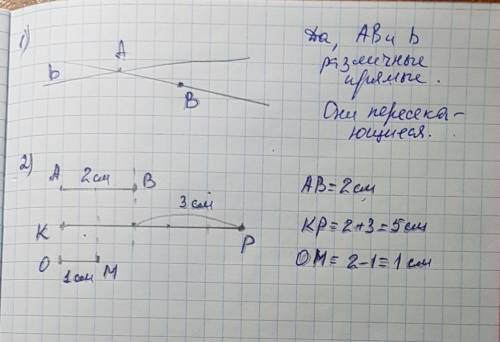 1)
A
b
B
Да, AB и b
различные
прямые.
Они пересека-
ющиеся.
2)
A 2 см B
3 см
K P
O M
1 см
AB = 2 см
KP = 2+3 = 5 см
OM = 2-1 = 1 см